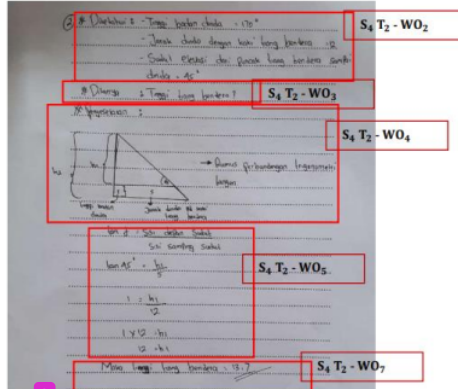 ② * Diketahui : - Tinggi badan dinda = 170°
S₄ T₂ - WO₂
- Jarak dinda dengan kaki tiang bendera = 12
- Sudut elevasi dari puncak tiang bendera
dinda = 45°
* Ditanya : Tinggi tiang bendera ?
S₄ T₂ - WO₃
* Penyelesaian :
S₄ T₂ - WO₄
h₂
h₁
→ Rumus perbandingan trigonometri
tinggi badan
dinda
Jarak dinda kaki
tiang bendera
tan = Sisi depan Sudut
Sisi samping Sudut
tan 45° = h₁
S
S₄ T₂ - WO₅
1 = h₁
12
1 x 12 = h₁
12 = h₁
Maka tinggi tiang bendera = 13,7
S₄ T₂ - WO₇